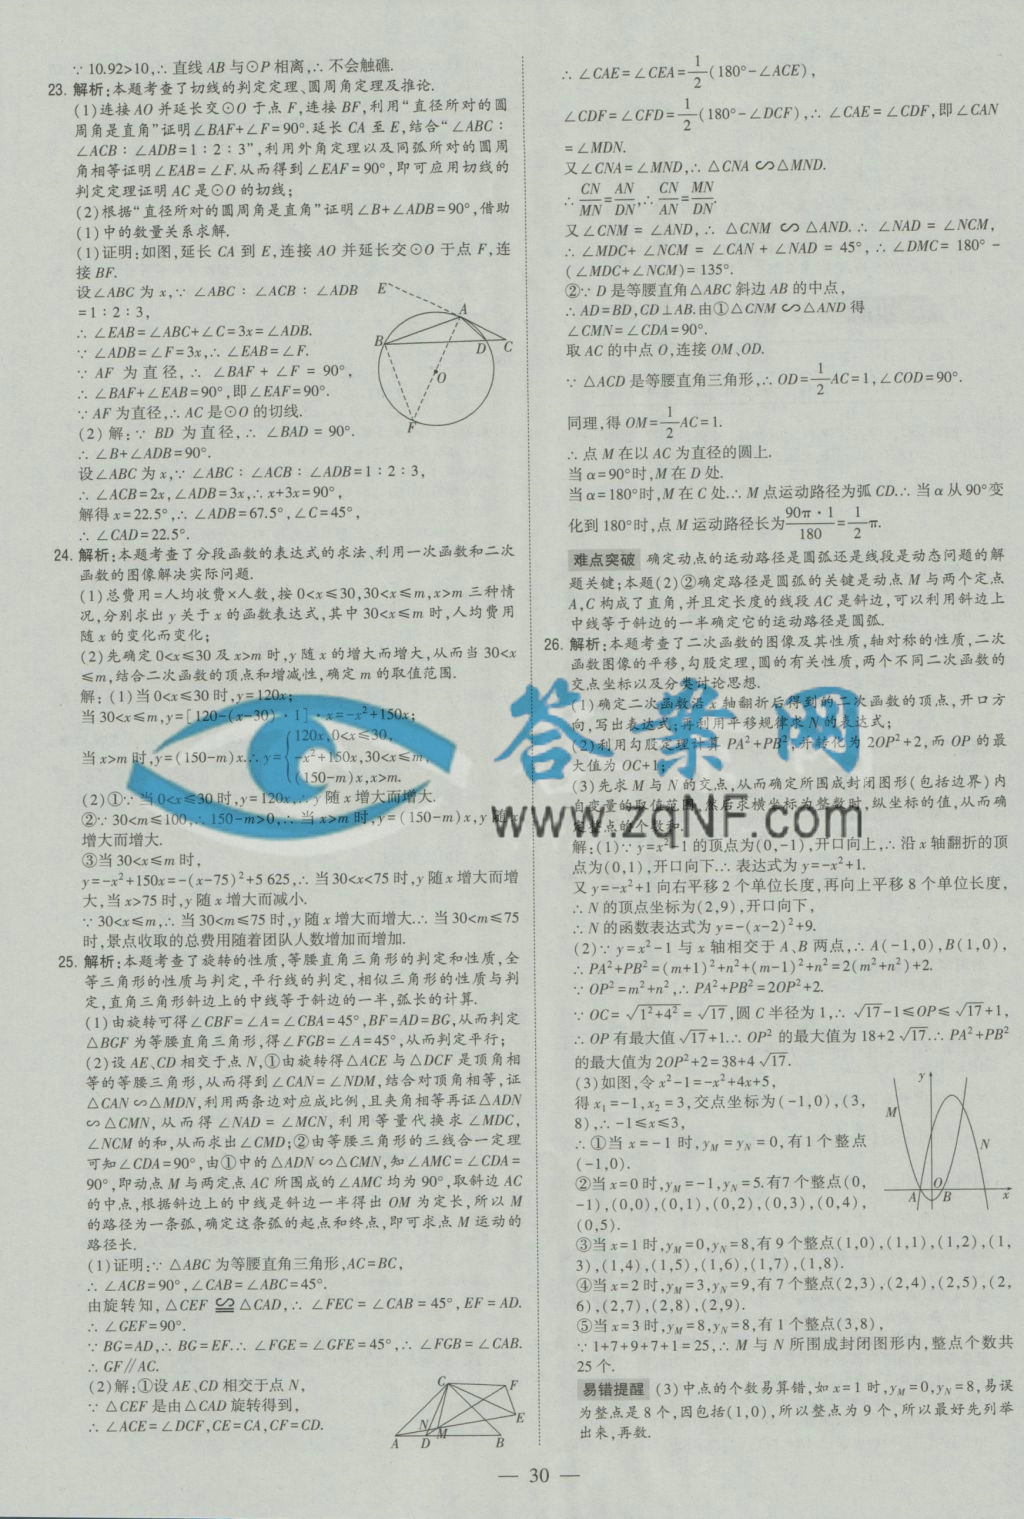 ∵10.92>10,∴直线AB与⊙P相离,∴不会触礁.
23. 解析:本题考查了切线的判定定理、圆周角定理及推论.
(1)连接AO并延长交⊙O于点F,连接BF,利用“直径所对的圆
周角是直角”证明∠BAF+∠F=90°.延长CA至E,结合“∠ABC∶
∠ACB∶∠ADB=1∶2∶3”,利用外角定理以及同弧所对的圆周
角相等证明∠EAB=∠F.从而得到∠EAF=90°,即可应用切线的
判定定理证明AC是⊙O的切线;
(2)根据“直径所对的圆周角是直角”证明∠B+∠ADB=90°,借助
(1)中的数量关系求解.
(1)证明:如图,延长CA到E,连接AO并延长交⊙O于点F,连
接BF.
设∠ABC为x,∵∠ABC∶∠ACB∶∠ADB
=1∶2∶3,
∴∠EAB=∠ABC+∠C=3x=∠ADB.
∵∠ADB=∠F=3x,∴∠EAB=∠F.
∵AF为直径,∴∠BAF+∠F=90°,
∴∠BAF+∠EAB=90°,即∠EAF=90°.
∵AF为直径,∴AC是⊙O的切线.
(2)解:∵BD为直径,∴∠BAD=90°.
∴∠B+∠ADB=90°.
设∠ABC为x,∵∠ABC∶∠ACB∶∠ADB=1∶2∶3,
∴∠ACB=2x,∠ADB=3x,∴x+3x=90°,
解得x=22.5°,∴∠ADB=67.5°,∠C=45°,
∴∠CAD=22.5°.
E A B D C O F
24. 解析:本题考查了分段函数的表达式的求法、利用一次函数和二次
函数的图像解决实际问题.
(1)总费用=人均收费×人数,按0<x≤30,30<x≤m,x>m三种情
况,分别求出y关于x的函数表达式,其中30<x≤m时,人均费用
随x的变化而变化;
(2)先确定0<x≤30及x>m时,y随x的增大而增大,从而当30<x
≤m,结合二次函数的顶点和增减性,确定m的取值范围.
解:(1)当0<x≤30时,y=120x;
当30<x≤m,y=[120-(x-30)·1]·x=-x²+150x;
当x>m时,y=(150-m)x.∴y={120x,0<x≤30,
-x²+150x,30<x≤m,
(150-m)x,x>m.
(2)①∵当0<x≤30时,y=120x,∴y随x增大而增大.
②∵30<m≤100,∴150-m>0,∴当x>m时,y=(150-m)x,y随x
增大而增大.
③当30<x≤m时,
y=-x²+150x=-(x-75)²+5 625,∴当30<x<75时,y随x增大而增
大,当x>75时,y随x增大而减小.
∵30<x≤m,∴当30<m≤75时,y随x增大而增大.∴当30<m≤75
时,景点收取的总费用随着团队人数增加而增加.
25. 解析:本题考查了旋转的性质,等腰直角三角形的判定和性质,全
等三角形的性质与判定,平行线的判定,相似三角形的性质与判
定,直角三角形斜边上的中线等于斜边的一半,弧长的计算.
(1)由旋转可得∠CBF=∠A=∠CBA=45°,BF=AD=BG,从而判定
△BGF为等腰直角三角形,得∠FGB=∠A=45°,从而判定平行;
(2)设AE、CD相交于点N,①由旋转得△ACE与△DCF是顶角相
等的等腰三角形,从而得到∠CAN=∠NDM,结合对顶角相等,证
△CAN∽△MDN,利用两条边对应成比例,且夹角相等再证△ADN
∽△CMN,从而得∠NAD=∠MCN,利用等量代换求∠MDC、
∠NCM的和,从而求出∠CMD;②由等腰三角形的三线合一定理
可知∠CDA=90°,由①中的△ADN∽△CMN,知∠AMC=∠CDA=
90°,即动点M与两定点AC所围成的∠AMC均为90°,取斜边AC
的中点,根据斜边上的中线是斜边一半得出OM为定长,所以M
的路径为一条弧,确定这条弧的起点和终点,即可求点M运动的
路径长.
(1)证明:∵△ABC为等腰直角三角形,AC=BC,
∴∠ACB=90°,∠CAB=∠ABC=45°.
由旋转知,△CEF≌△CAD,∴∠FEC=∠CAB=45°,EF=AD.
∴∠GEF=90°.
∵BG=AD,∴BG=EF.∴∠FGE=∠GFE=45°,∴∠FGB=∠CAB.
∴GF∥AC.
(2)解:①设AE、CD相交于点N,
∵△CEF是由△CAD旋转得到,
∴∠ACE=∠DCF,CE=CA,CF=CD.
C F N M E A D B
∴∠CAE=∠CEA=1/2(180°-∠ACE),
∠CDF=∠CFD=1/2(180°-∠DCF),∴∠CAE=∠CDF,即∠CAN
=∠MDN.
又∠CNA=∠MND,∴△CNA∽△MND.
∴CN/MN=AN/DN,∴CN/AN=MN/DN.
又∠CNM=∠AND,∴△CNM∽△AND.∴∠NAD=∠NCM,
∴∠MDC+∠NCM=∠CAN+∠NAD=45°,∴∠DMC=180°-
(∠MDC+∠NCM)=135°.
②∵D是等腰直角△ABC斜边AB的中点,
∴AD=BD,CD⊥AB.由①△CNM∽△AND得
∠CMN=∠CDA=90°.
取AC的中点O,连接OM、OD.
∵△ACD是等腰直角三角形,∴OD=1/2AC=1,∠COD=90°.
同理,得OM=1/2AC=1.
∴点M在以AC为直径的圆上.
当α=90°时,M在D处.
当α=180°时,M在C处.∴M点运动路径为弧CD.∴当α从90°变
化到180°时,点M运动路径长为90π·1/180=1/2π.
难点突破 确定动点的运动路径是圆弧还是线段是动态问题的解
题关键;本题(2)②确定路径是圆弧的关键是动点M与两个定点
A,C构成了直角,并且定长度的线段AC是斜边,可以利用斜边上
中线等于斜边的一半确定它的运动路径是圆弧.
26. 解析:本题考查了二次函数的图像及其性质,轴对称的性质,二次
函数图像的平移,勾股定理,圆的有关性质,两个不同二次函数的
交点坐标以及分类讨论思想.
(1)确定二次函数沿x轴翻折后得到的二次函数的顶点、开口方
向,写出表达式;再利用平移规律求N的表达式;
(2)利用勾股定理计算PA²+PB²,并转化为2OP²+2,而OP的最
大值为OC+1;
(3)先求M与N的交点,从而确定所围成封闭图形(包括边界)内
自变量的取值范围,然后求横坐标为整数时,纵坐标的值,从而确
定整点的个数和.
解:(1)∵y=x²-1的顶点为(0,-1),开口向上,∴沿x轴翻折的顶
点为(0,1),开口向下.∴表达式为y=-x²+1.
又y=-x²+1向右平移2个单位长度,再向上平移8个单位长度,
∴N的顶点坐标为(2,9),开口向下,
∴N的函数表达式为y=-(x-2)²+9.
(2)∵y=x²-1与x轴相交于A、B两点,∴A(-1,0),B(1,0),
∴PA²+PB²=(m+1)²+n²+(m-1)²+n²=2(m²+n²)+2.
∵OP²=m²+n²,∴PA²+PB²=2OP²+2.
∵OC=√(1²+4²)=√17,圆C半径为1,∴√17-1≤OP≤√17+1,
∴OP有最大值√17+1.∴OP²的最大值为18+2√17.∴PA²+PB²
的最大值为2OP²+2=38+4√17.
(3)如图,令x²-1=-x²+4x+5,
得x₁=-1,x₂=3,交点坐标为(-1,0),(3,
8),∴-1≤x≤3,
∴①当x=-1时,yM=yN=0,有1个整点
(-1,0).
②当x=0时,yM=-1,yN=5.有7个整点(0,
-1),(0,0),(0,1),(0,2),(0,3),(0,4),
(0,5).
③当x=1时,yM=0,yN=8,有9个整点(1,0),(1,1),(1,2),(1,
3),(1,4),(1,5),(1,6),(1,7),(1,8).
④当x=2时,yM=3,yN=9,有7个整点(2,3),(2,4),(2,5),(2,
6),(2,7),(2,8),(2,9).
⑤当x=3时,yM=8,yN=8,有1个整点(3,8),
∵1+7+9+7+1=25,∴M与N所围成封闭图形内,整点个数共
25个.
y M N A O B x
易错提醒 (3)中点的个数易算错,如x=1时,yM=0,yN=8,易误
为整点是8个,因包括(1,0),所以整点为9个,所以最好先列举
出来,再数.
— 30 —
答案网
www.zqNF.com